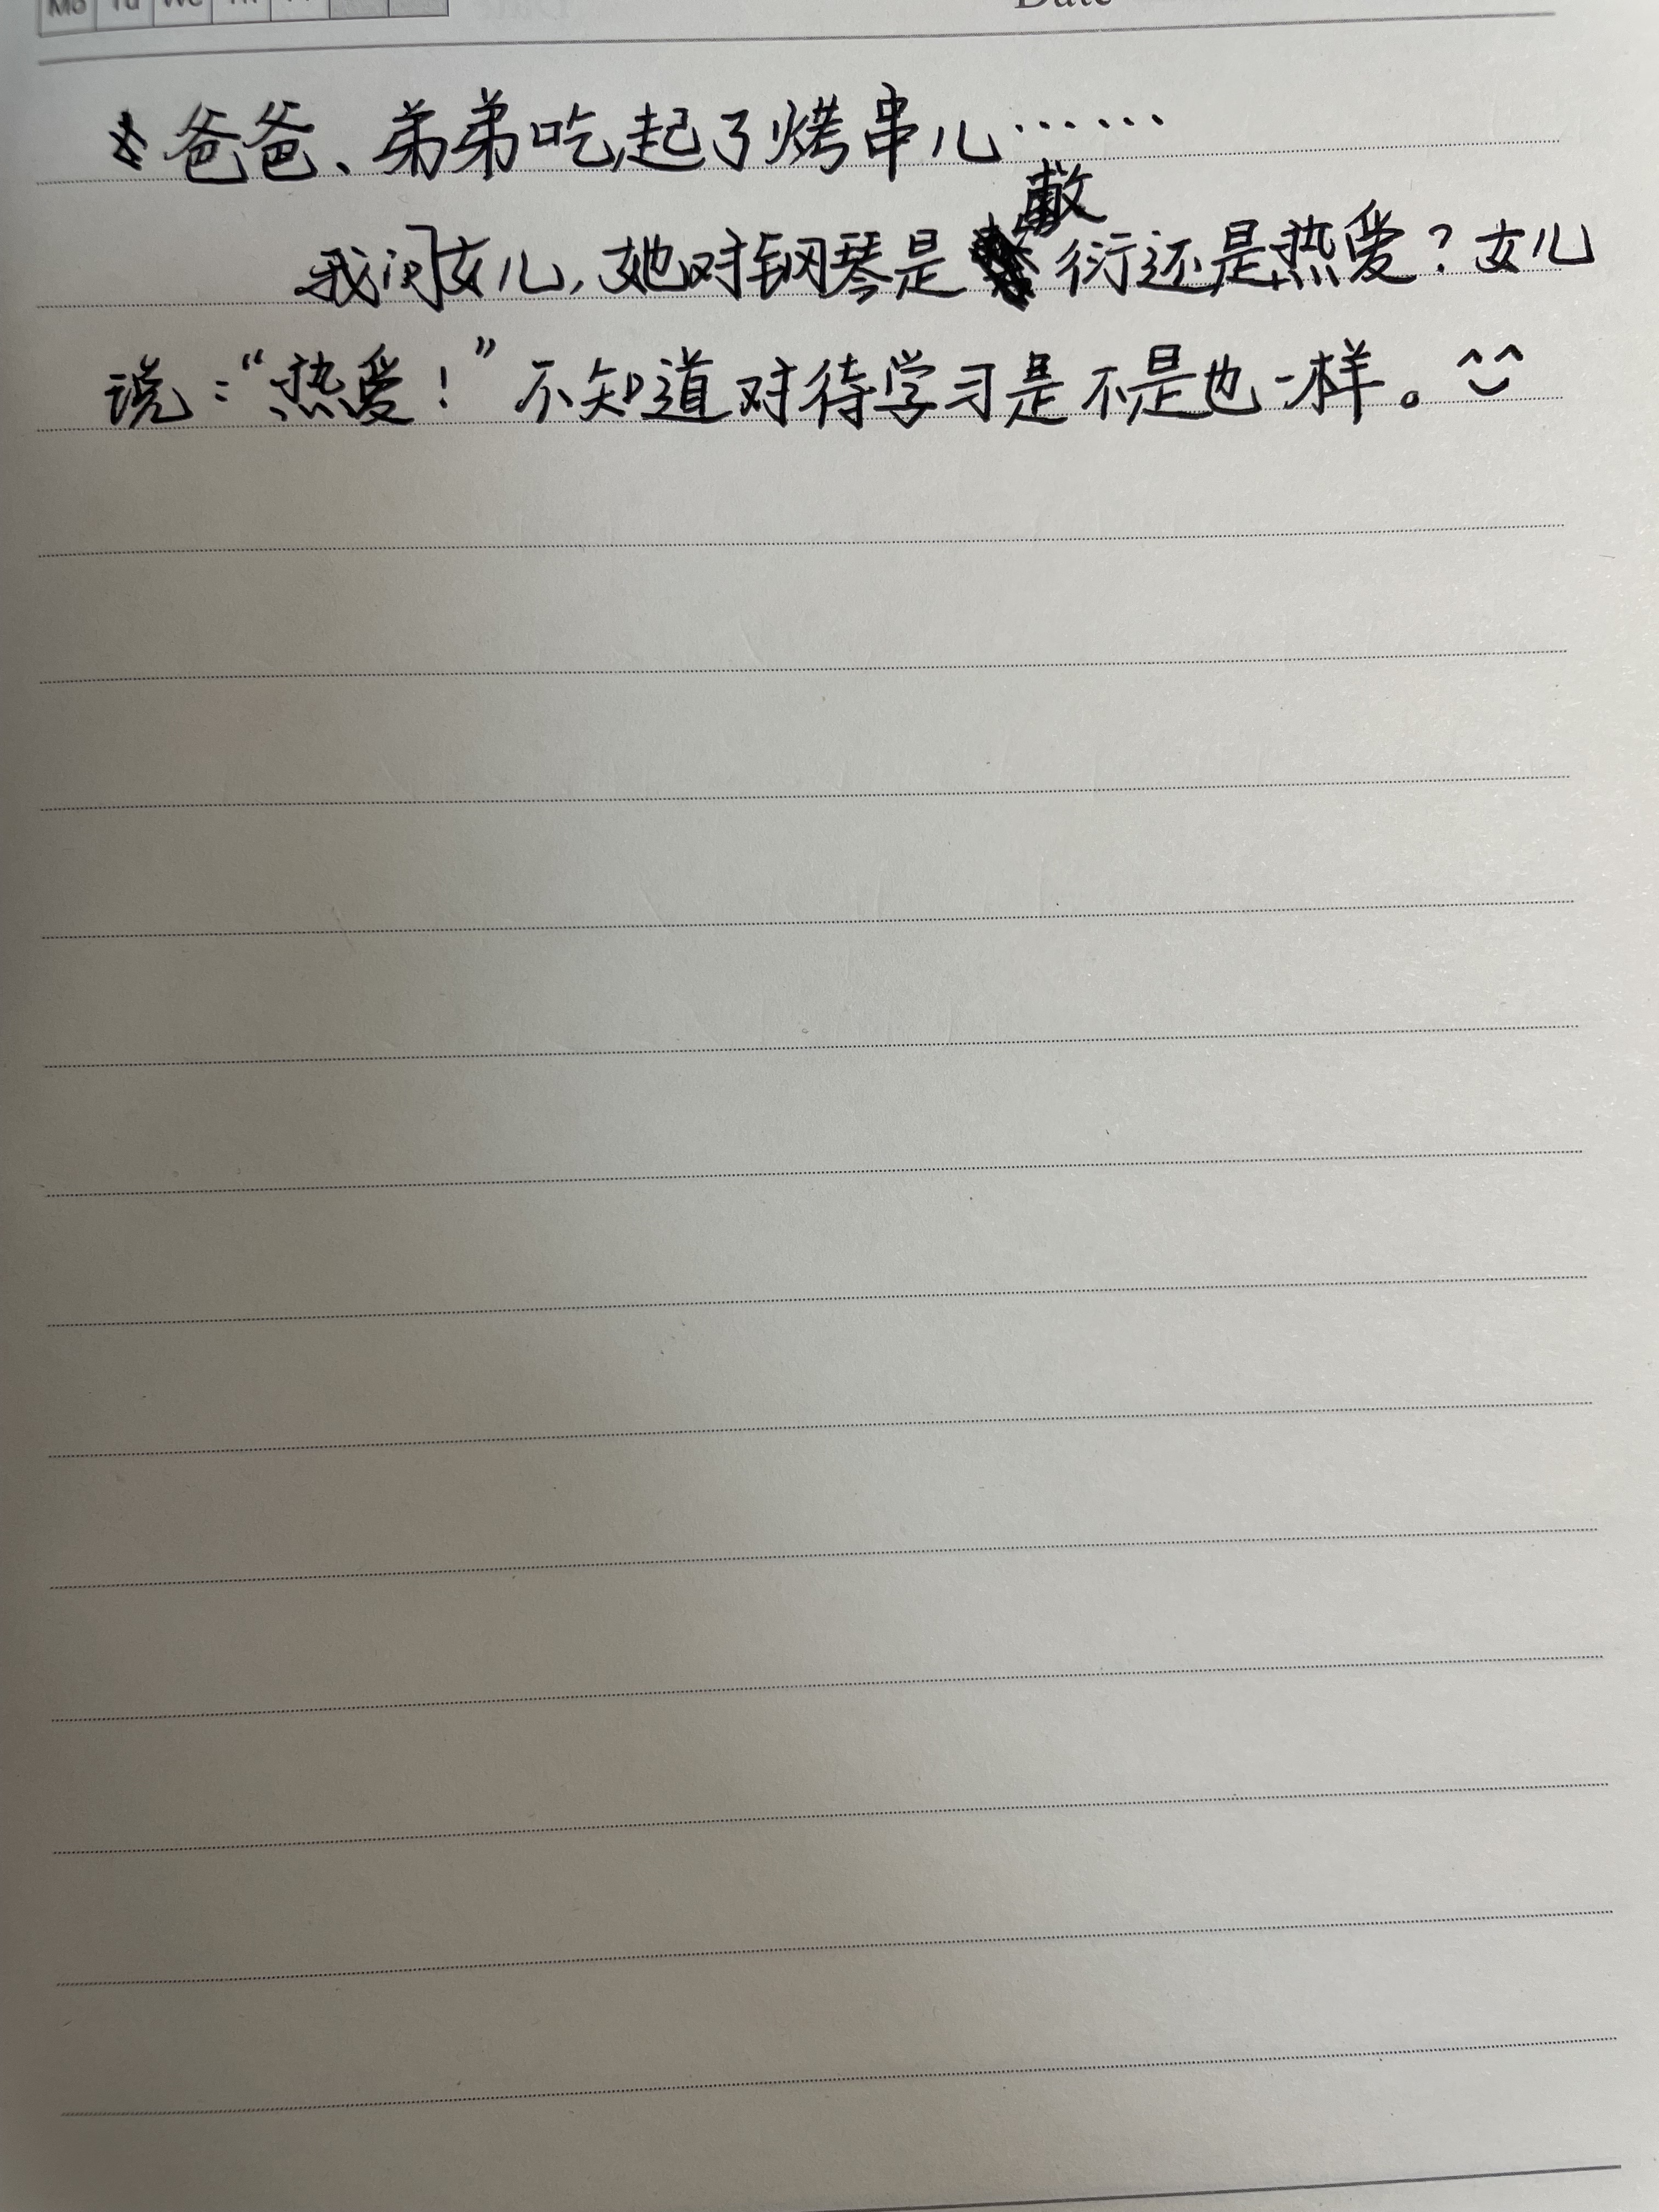 Mo Tu We Th Fr Date
爸爸、弟弟吃起了烤串儿……
我问女儿，她对钢琴是敷衍还是热爱？女儿
说：“热爱！”不知道对待学习是不是也一样。^^